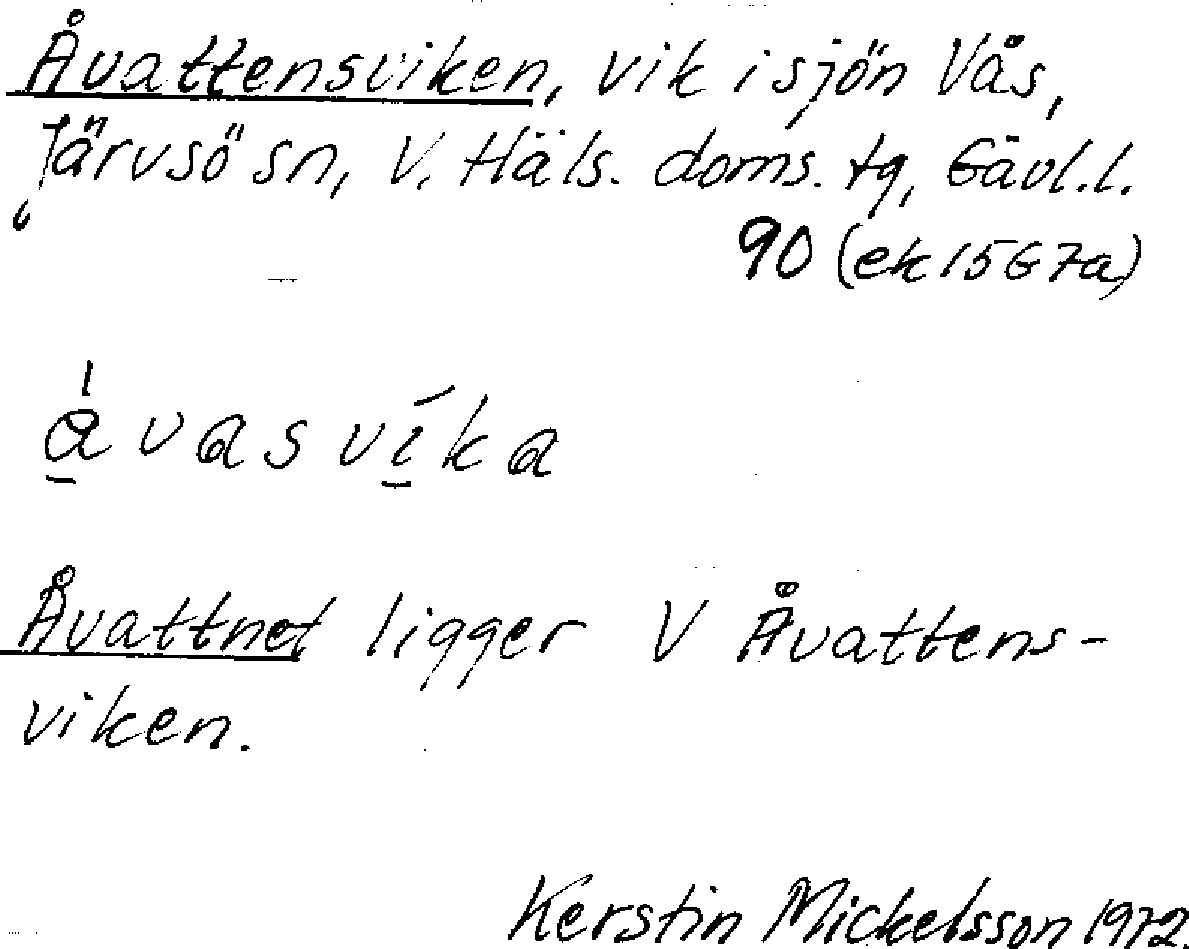 Åvattensviken, vik i sjön Vås,
Järvsö sn, V. Häls. doms. tg, Gävl.l.
90 (ek 15G7a)
åvasvíka
Åvattnet ligger V Åvattens-
viken.
Kerstin Mickelsson 1972.